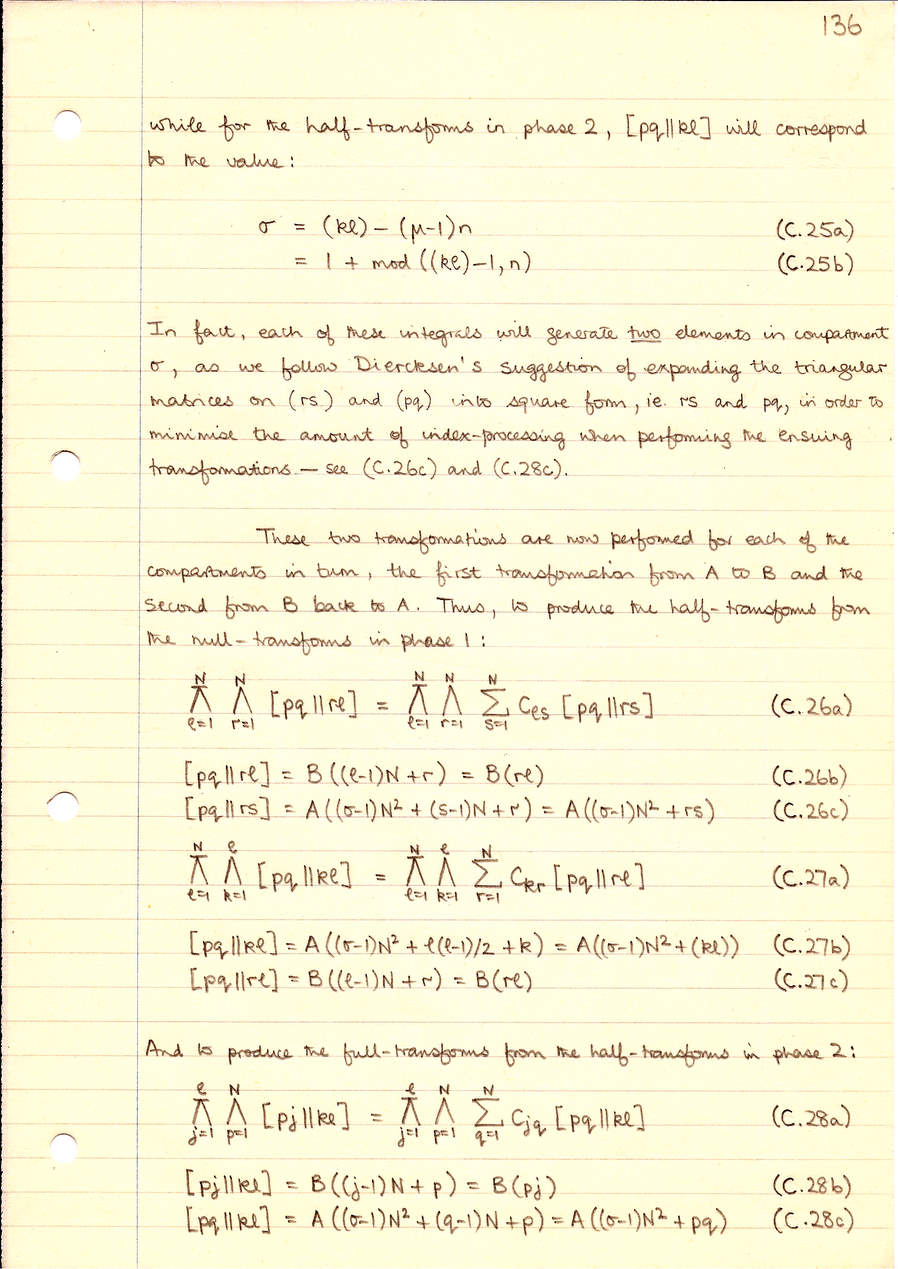 136
while for the half-transforms in phase 2, [pq||kl] will correspond
to the value:
σ = (kl) − (μ−1)n (C.25a)
= 1 + mod ((kl)−1, n) (C.25b)
In fact, each of these integrals will generate two elements in compartment
σ, as we follow Diercksen's suggestion of expanding the triangular
matrices on (rs) and (pq) into square form, ie. rs and pq, in order to
minimise the amount of index-processing when performing the ensuing
transformations — see (C.26c) and (C.28c).
These two transformations are now performed for each of the
compartments in turn, the first transformation from A to B and the
second from B back to A. Thus, to produce the half-transforms from
the null-transforms in phase 1:
N N N N N
Λ Λ [pq||rl] = Λ Λ Σ Cls [pq||rs] (C.26a)
l=1 r=1 l=1 r=1 s=1
[pq||rl] = B((l−1)N+r) = B(rl) (C.26b)
[pq||rs] = A((σ−1)N² + (s−1)N + r) = A((σ−1)N² + rs) (C.26c)
N l N l N
Λ Λ [pq||kl] = Λ Λ Σ Ckr [pq||rl] (C.27a)
l=1 k=1 l=1 k=1 r=1
[pq||kl] = A((σ−1)N² + l(l−1)/2 + k) = A((σ−1)N² + (kl)) (C.27b)
[pq||rl] = B((l−1)N + r) = B(rl) (C.27c)
And to produce the full-transforms from the half-transforms in phase 2:
l N l N N
Λ Λ [pj||kl] = Λ Λ Σ Cjq [pq||kl] (C.28a)
j=1 p=1 j=1 p=1 q=1
[pj||kl] = B((j−1)N + p) = B(pj) (C.28b)
[pq||kl] = A((σ−1)N² + (q−1)N + p) = A((σ−1)N² + pq) (C.28c)